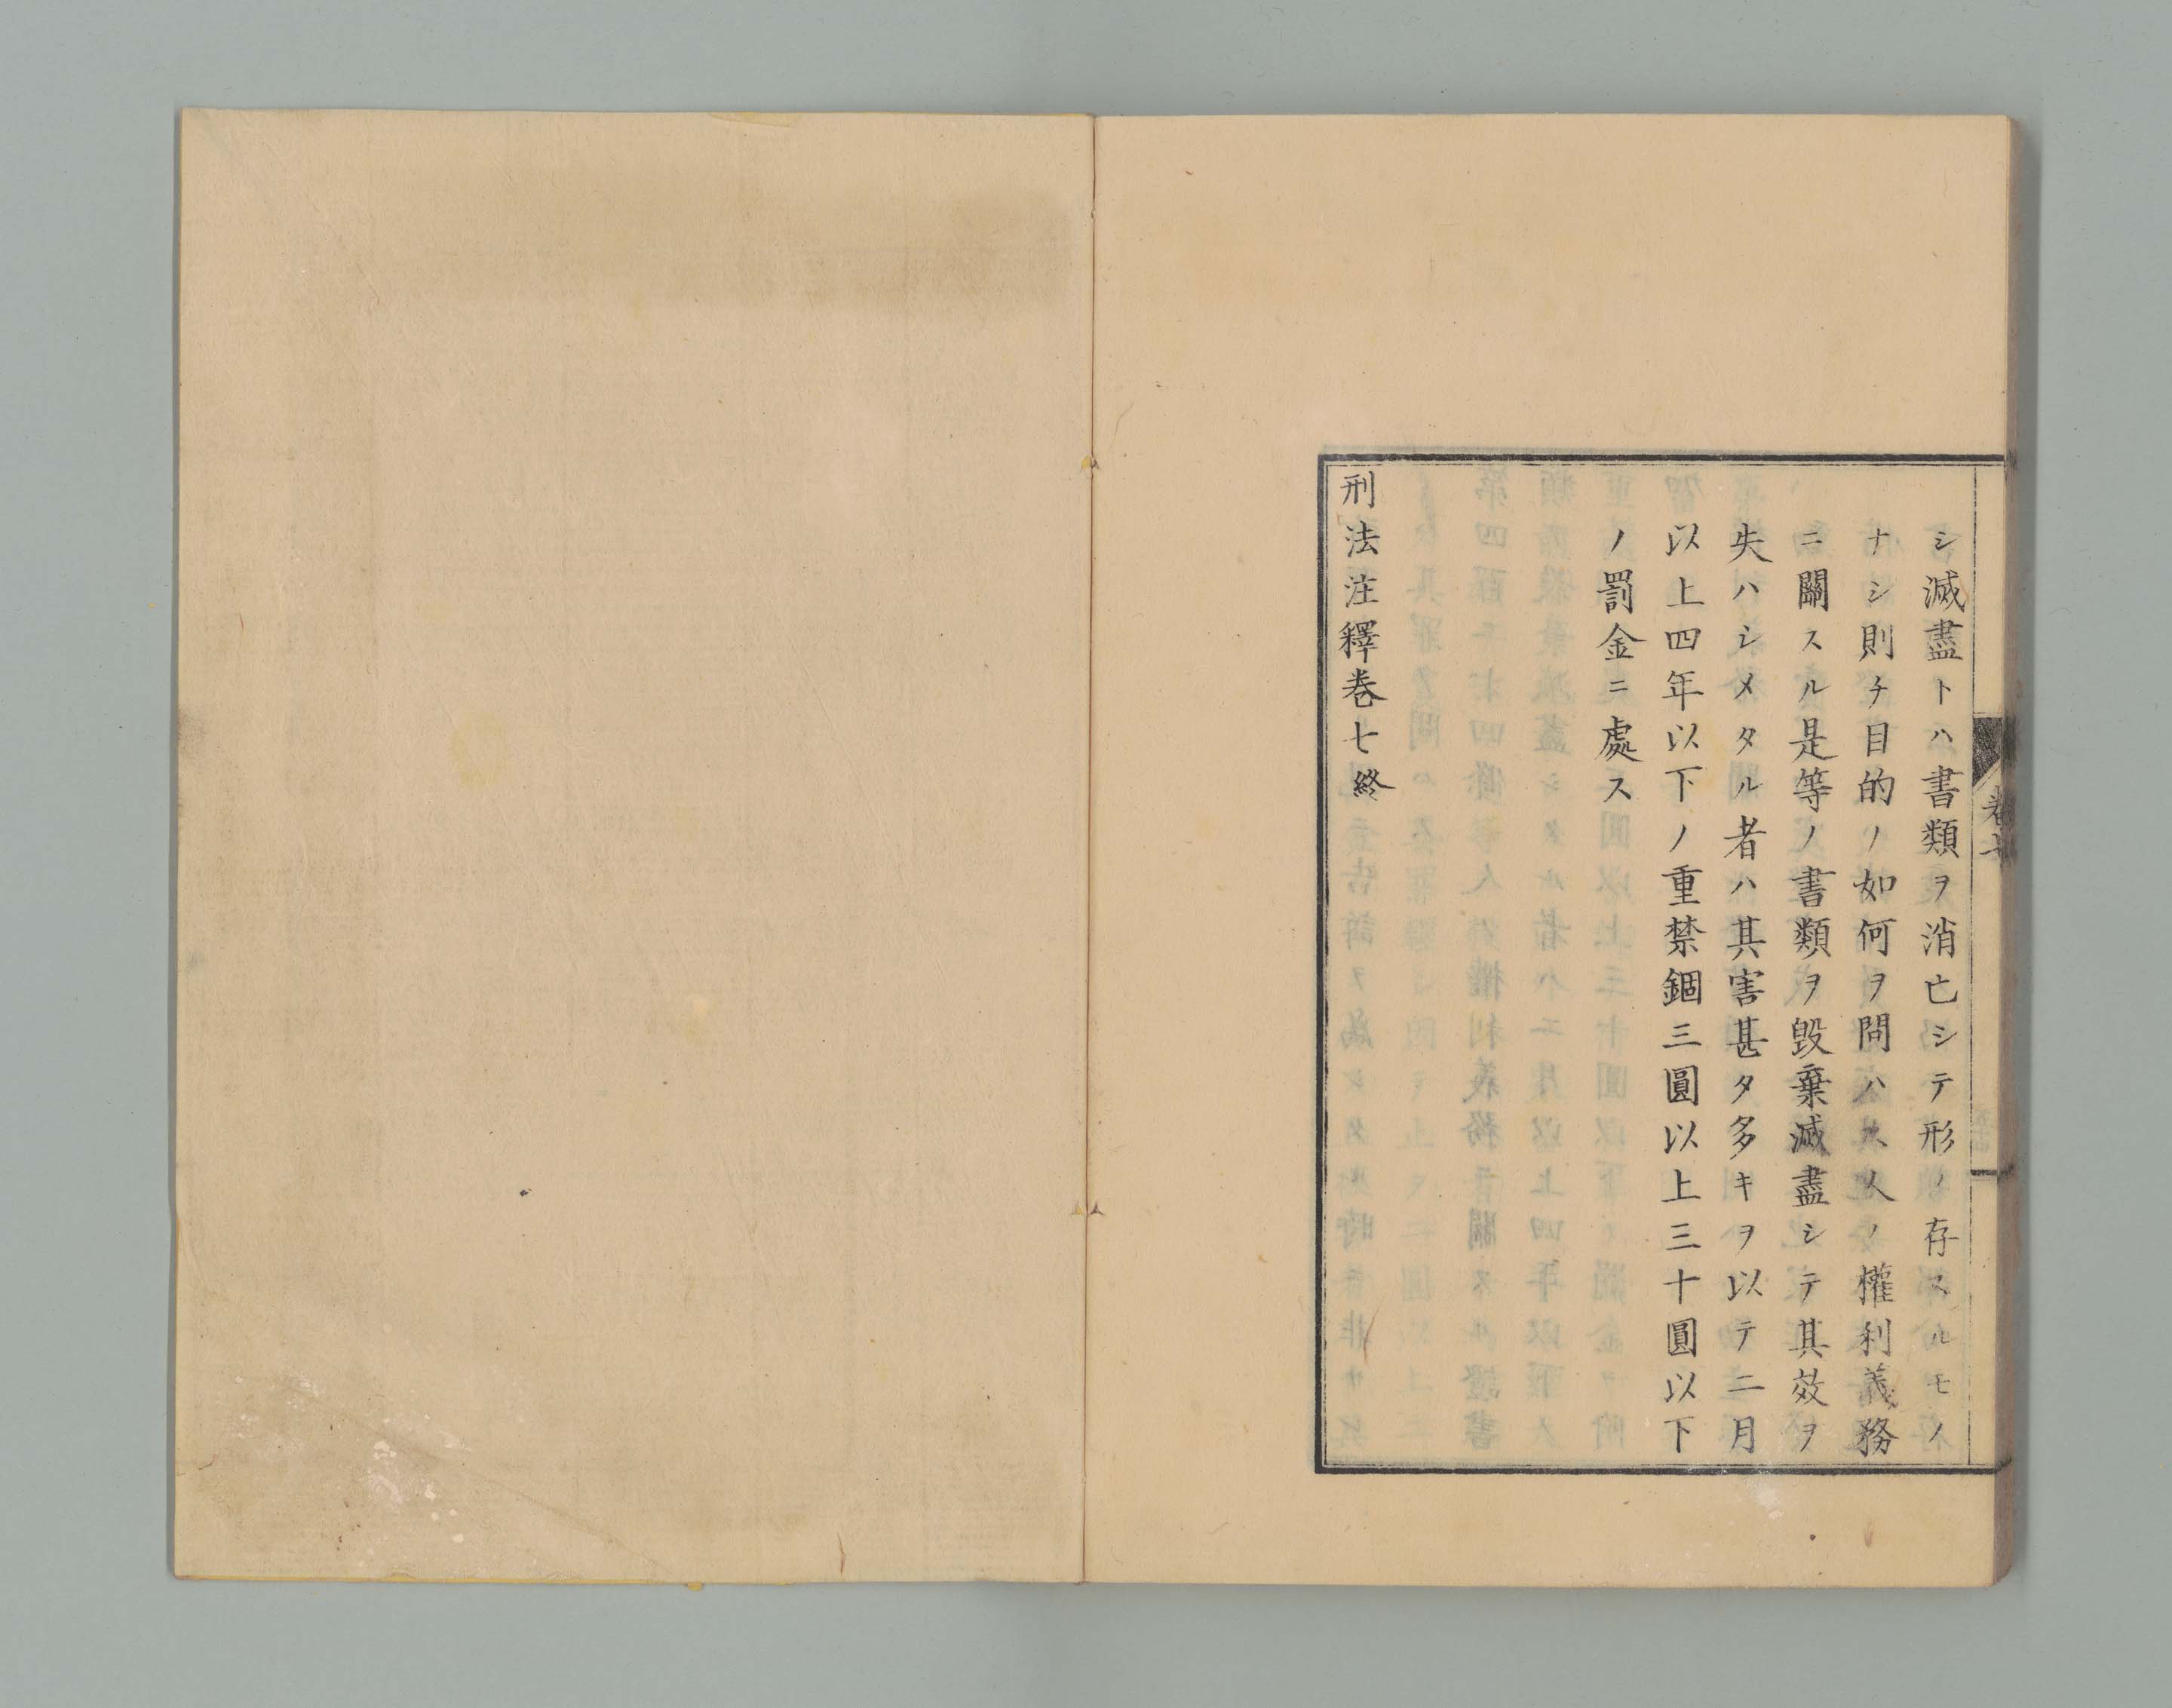 シ滅盡トハ書類ヲ消亡シテ形ノ存スルモノ
ナシ則チ目的ノ如何ヲ問ハス人ノ權利義務
ニ關スル是等ノ書類ヲ毀棄滅盡シテ其效ヲ
失ハシメタル者ハ其害甚タ多キヲ以テ二月
以上四年以下ノ重禁錮三圓以上三十圓以下
ノ罰金ニ處ス
刑法注釋卷七終
卷七